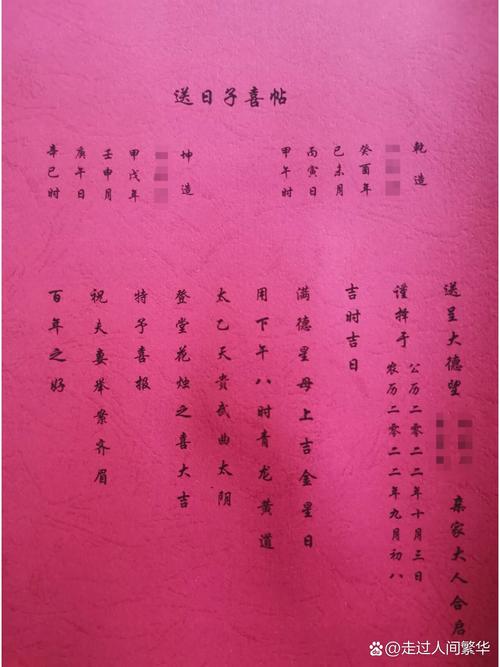 送日子喜帖
乾造
癸酉年
己未月
丙寅日
甲午时
坤造
甲戌年
壬申月
庚午日
辛巳时
送呈大德望 亲家大人合启
谨择于
公历二零二二年十月三日
农历二零二二年九月初八
吉时吉日
满德星母上吉金星日
用下午八时青龙黄道
太乙天贵武曲太阴
登堂花烛之喜大吉
特予喜报
祝夫妻举案齐眉
百年之好
@走过人间繁华